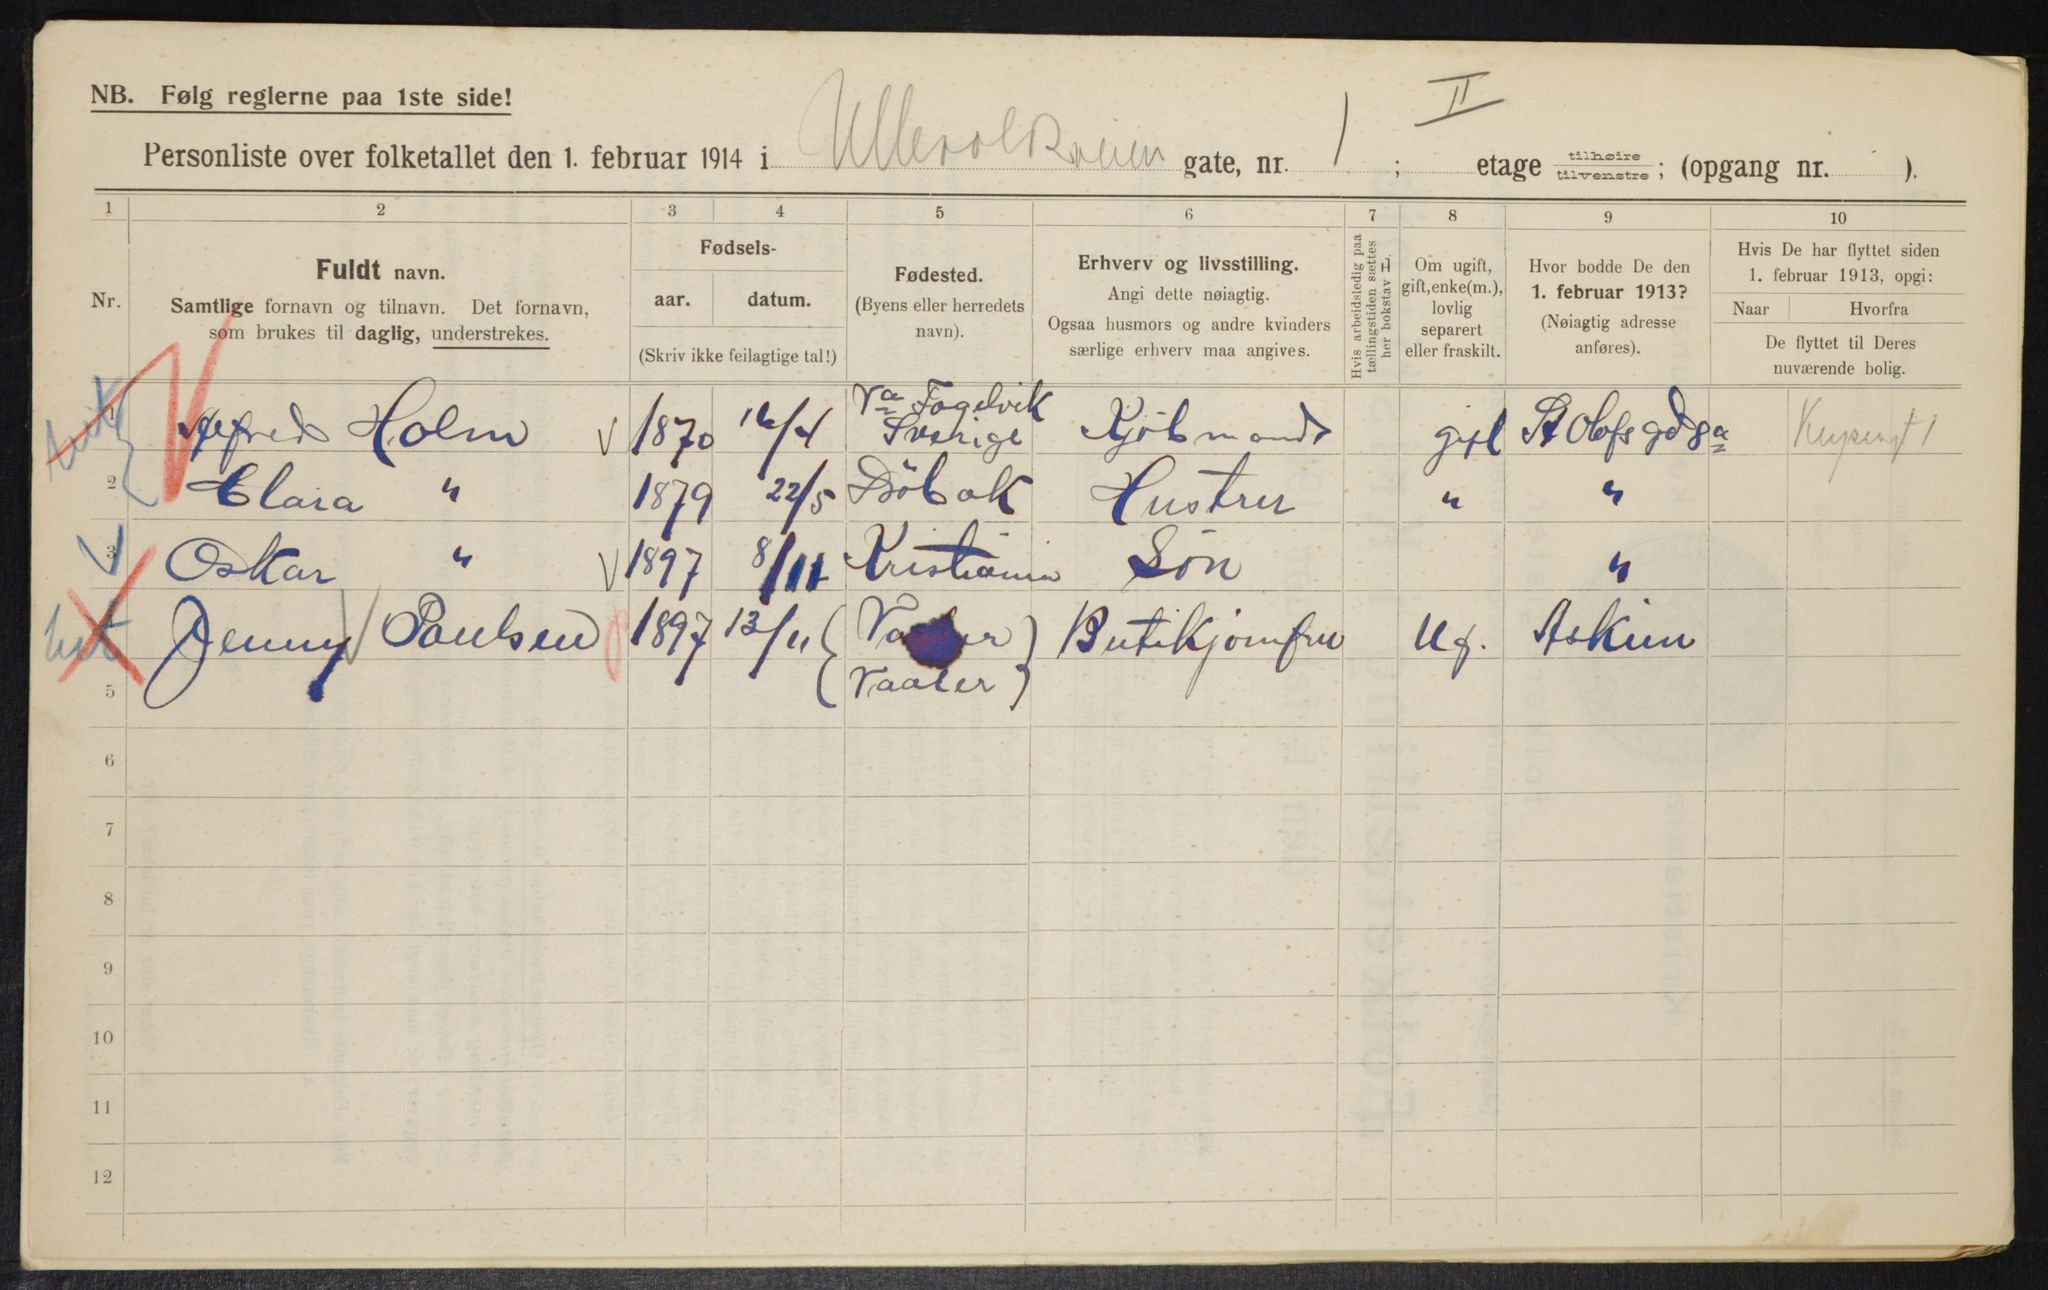 NB. Følg reglerne paa 1ste side!
Personliste over folketallet den 1. februar 1914 i Ullevoldsveien gate, nr. 1 ; II etage tilhøire tilvenstre ; (opgang nr. ).
1 2 3 4 5 6 7 8 9 10
Nr.
Fuldt navn.
Samtlige fornavn og tilnavn. Det fornavn,
som brukes til daglig, understrekes.
Fødsels-
aar. datum.
(Skriv ikke feilagtige tal!)
Fødested.
(Byens eller herredets
navn).
Erhverv og livsstilling.
Angi dette nøiagtig.
Ogsaa husmors og andre kvinders
særlige erhverv maa angives.
Hvis arbeidsledig paa
tællingstiden sættes
her bokstav H.
Om ugift,
gift, enke(m.),
lovlig
separert
eller fraskilt.
Hvor bodde De den
1. februar 1913?
(Nøiagtig adresse
anføres).
Hvis De har flyttet siden
1. februar 1913, opgi:
Naar Hvorfra
De flyttet til Deres
nuværende bolig.
1 Alfred Holm 1870 16/4 Va Fogelvik Sverige Kjöbmand gift St Olofs gd 8a
2 Clara " 1879 22/5 Dröbak Hustru " "
3 Oskar " 1897 8/11 Kristiania Sön "
Jenny Paulsen 1897 13/11 (Vaaler) Butikjomfru Ug. Askim
5 (Vaaler)
6
7
8
9
10
11
12